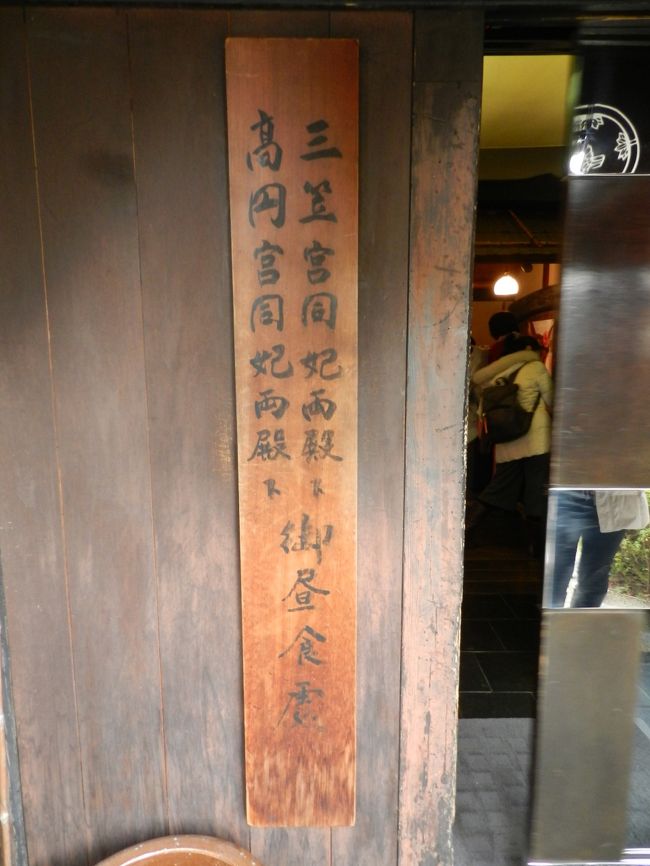 三笠宮同妃両殿下
高円宮同妃両殿下
御昼食處